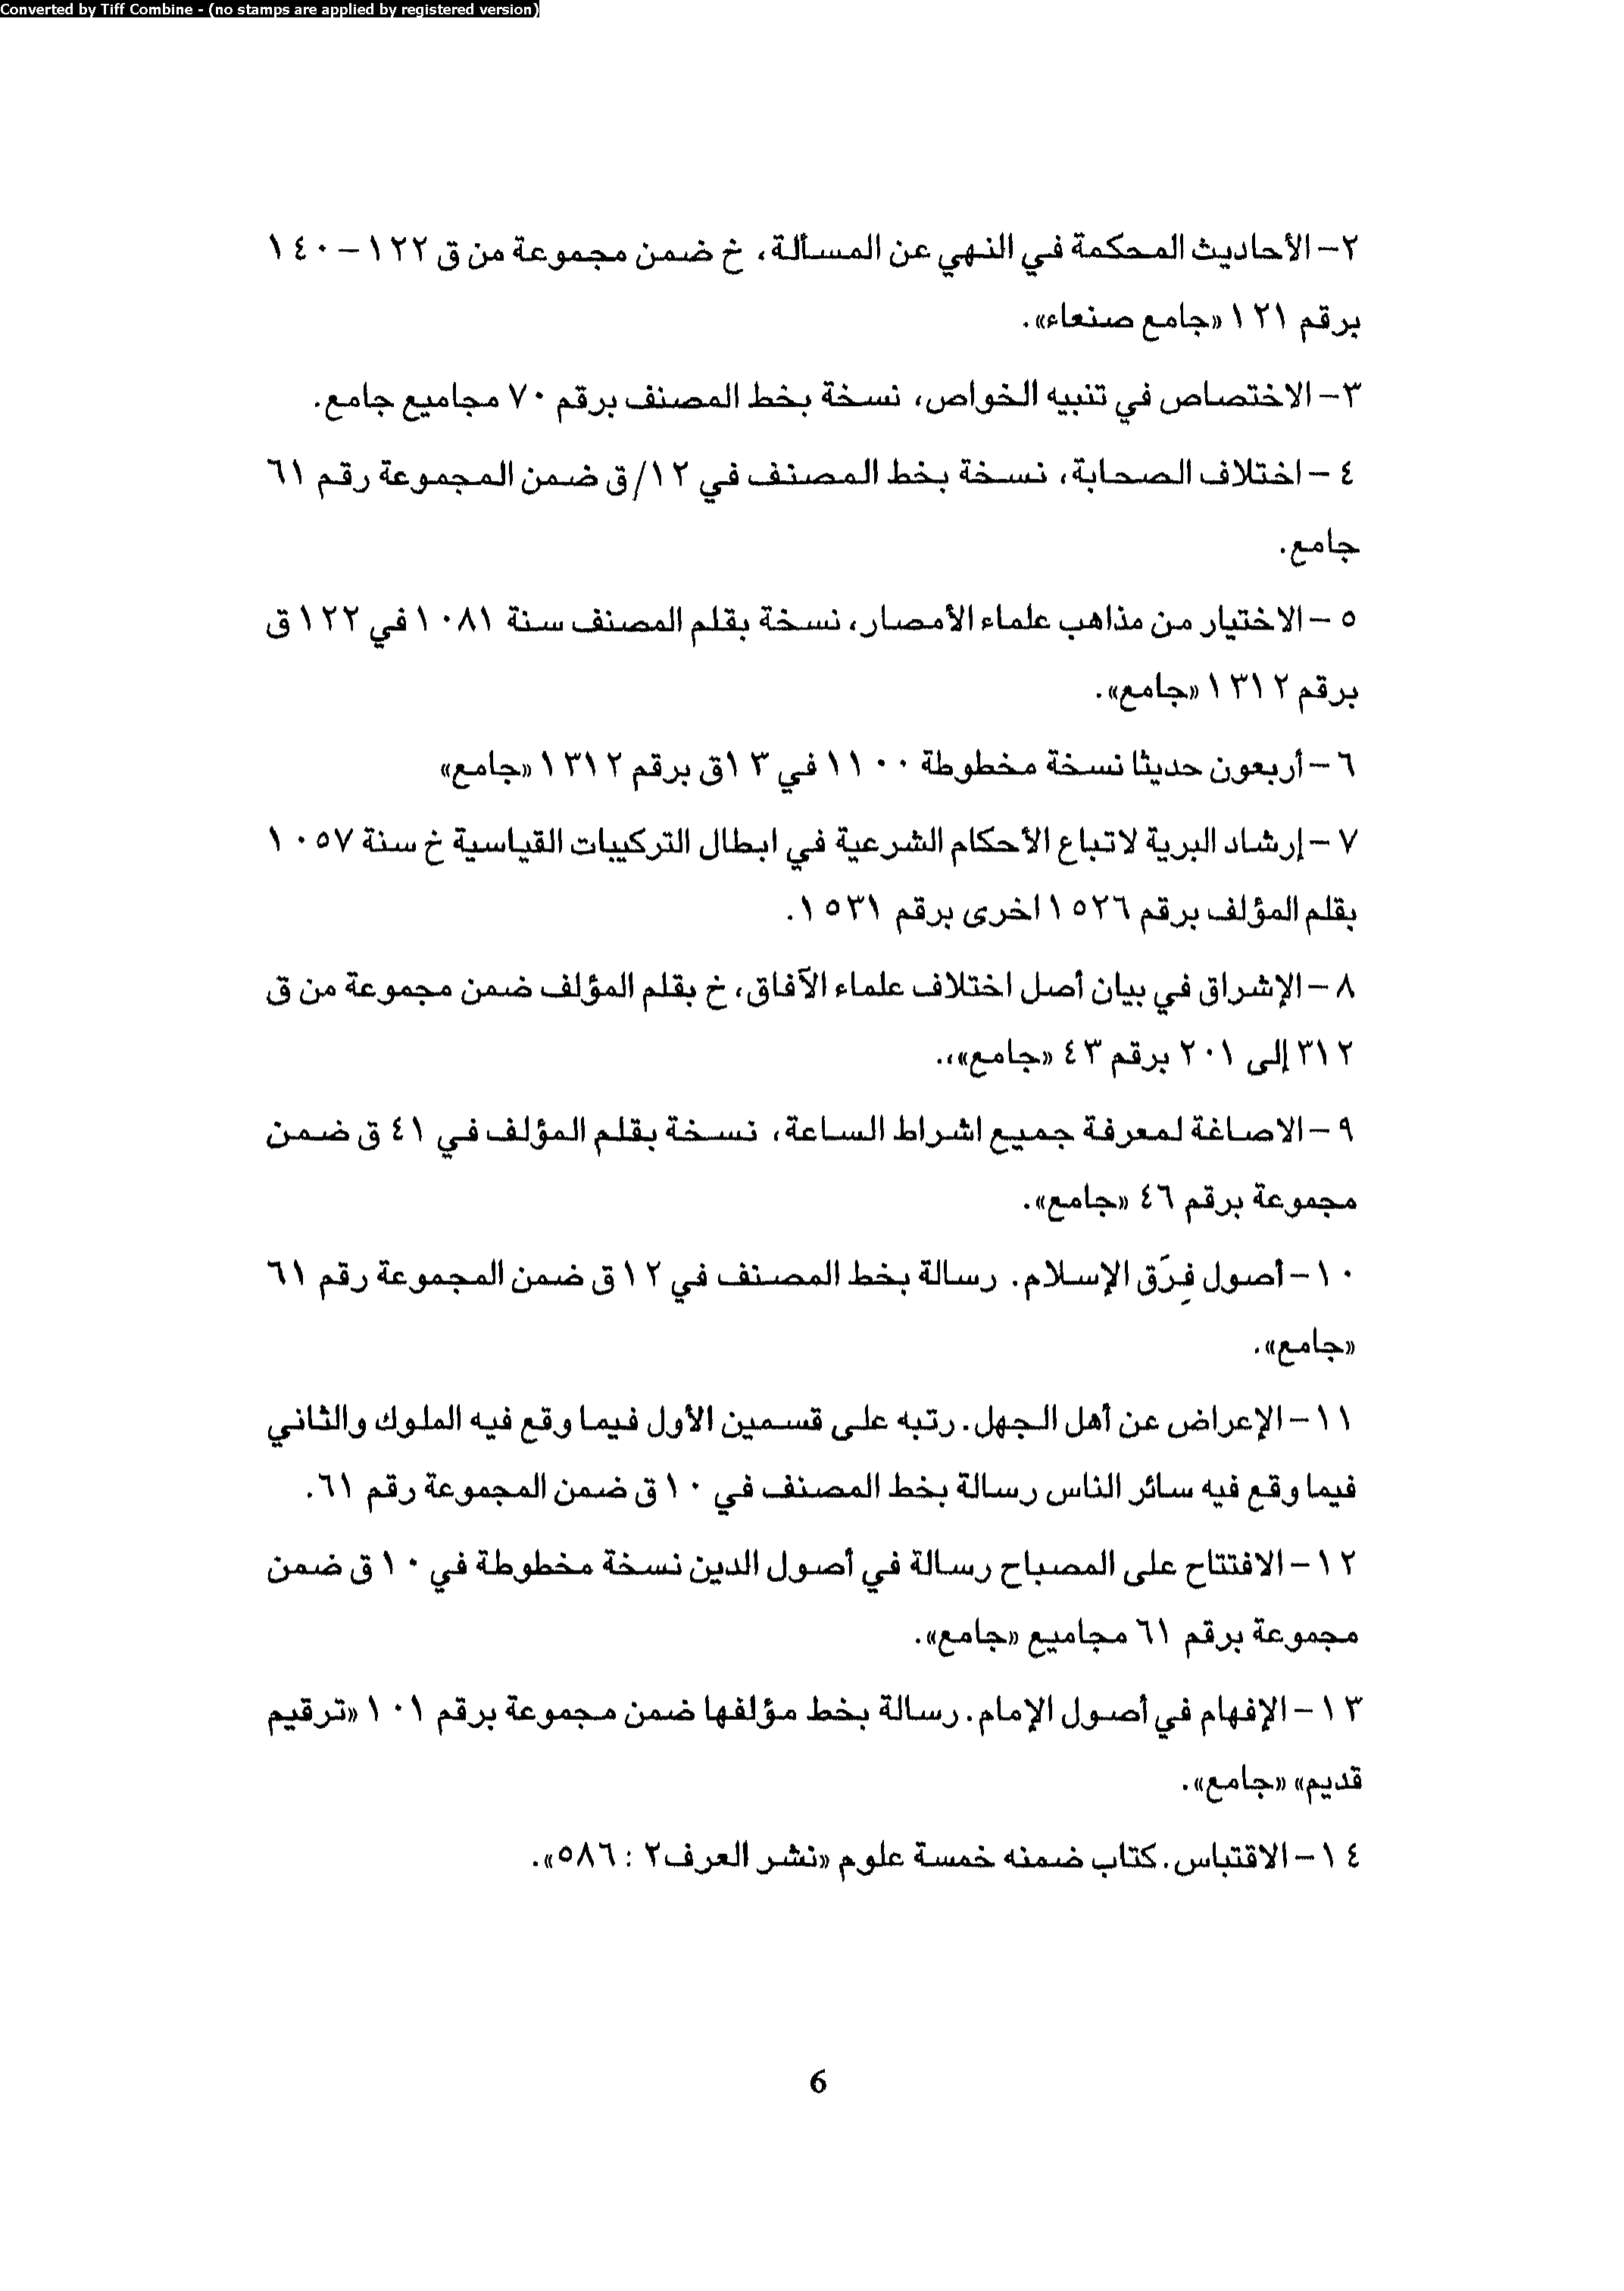 Converted by Tiff Combine - (no stamps are applied by registered version)
٢- الأحاديث المحكمة في النهي عن المسألة، خ ضمن مجموعة من ق ١٢٢ – ١٤٠
برقم ١٢١ «جامع صنعاء».
٣- الاختصاص في تنبيه الخواص، نسخة بخط المصنف برقم ٧٠ مجاميع جامع.
٤ - اختلاف الصحابة، نسخة بخط المصنف في ١٢/ق ضمن المجموعة رقم ٦١
جامع.
٥ - الاختيار من مذاهب علماء الأمصار، نسخة بقلم المصنف سنة ١٠٨١ في ١٢٢ق
برقم ١٣١٢ «جامع».
٦ - أربعون حديثا نسخة مخطوطة ١١٠٠ في ١٣ق برقم ١٣١٢ «جامع»
٧ - إرشاد البرية لاتباع الأحكام الشرعية في ابطال التركيبات القياسية خ سنة ١٠٥٧
بقلم المؤلف برقم ١٥٢٦ اخرى برقم ١٥٣١.
٨ - الإشراق في بيان أصل اختلاف علماء الآفاق، خ بقلم المؤلف ضمن مجموعة من ق
٣١٢ إلى ٢٠١ برقم ٤٣ «جامع»،.
٩ - الاصاغة لمعرفة جميع اشراط الساعة، نسخة بقلم المؤلف في ٤١ ق ضمن
مجموعة برقم ٤٦ «جامع».
١٠- أصول فِرَق الإسلام. رسالة بخط المصنف في ١٢ق ضمن المجموعة رقم ٦١
«جامع».
١١- الإعراض عن أهل الجهل. رتبه على قسمين الأول فيما وقع فيه الملوك والثاني
فيما وقع فيه سائر الناس رسالة بخط المصنف في ١٠ق ضمن المجموعة رقم ٦١.
١٢- الافتتاح على المصباح رسالة في أصول الدين نسخة مخطوطة في ١٠ق ضمن
مجموعة برقم ٦١ مجاميع «جامع».
١٣- الإفهام في أصول الإمام. رسالة بخط مؤلفها ضمن مجموعة برقم ١٠١ «ترقيم
قديم» «جامع».
١٤- الاقتباس. كتاب ضمنه خمسة علوم «نشر العرف٢ : ٥٨٦».
6